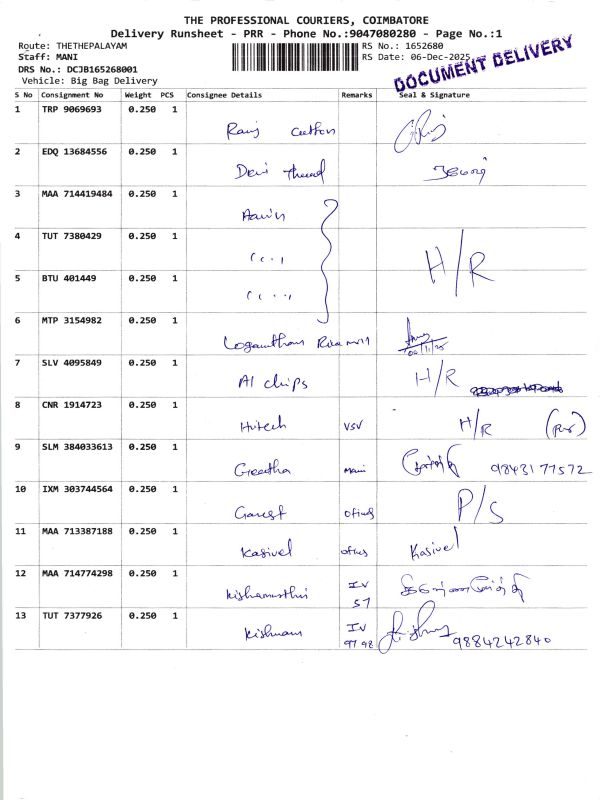 THE PROFESSIONAL COURIERS, COIMBATORE
Delivery Runsheet - PRR - Phone No.:9047080280 - Page No.:1
Route: THETHEPALAYAM RS No.: 1652680
Staff: MANI RS Date: 06-Dec-2025
DRS No.: DCJB165268001
Vehicle: Big Bag Delivery
DOCUMENT DELIVERY
S No Consignment No Weight PCS Consignee Details Remarks Seal & Signature
1 TRP 9069693 0.250 1
2 EDQ 13684556 0.250 1
Devi
3 MAA 714419484 0.250 1
4 TUT 7380429 0.250 1
H/R
5 BTU 401449 0.250 1
6 MTP 3154982 0.250 1
7 SLV 4095849 0.250 1
AI chips H/R
8 CNR 1914723 0.250 1
Hitech VSV H/R
9 SLM 384033613 0.250 1
Geetha 9843177572
10 IXM 303744564 0.250 1
P/S
11 MAA 713387188 0.250 1
Kasivel Kasivel
12 MAA 714774298 0.250 1
IV
57
13 TUT 7377926 0.250 1
IV
97 98 9884242840